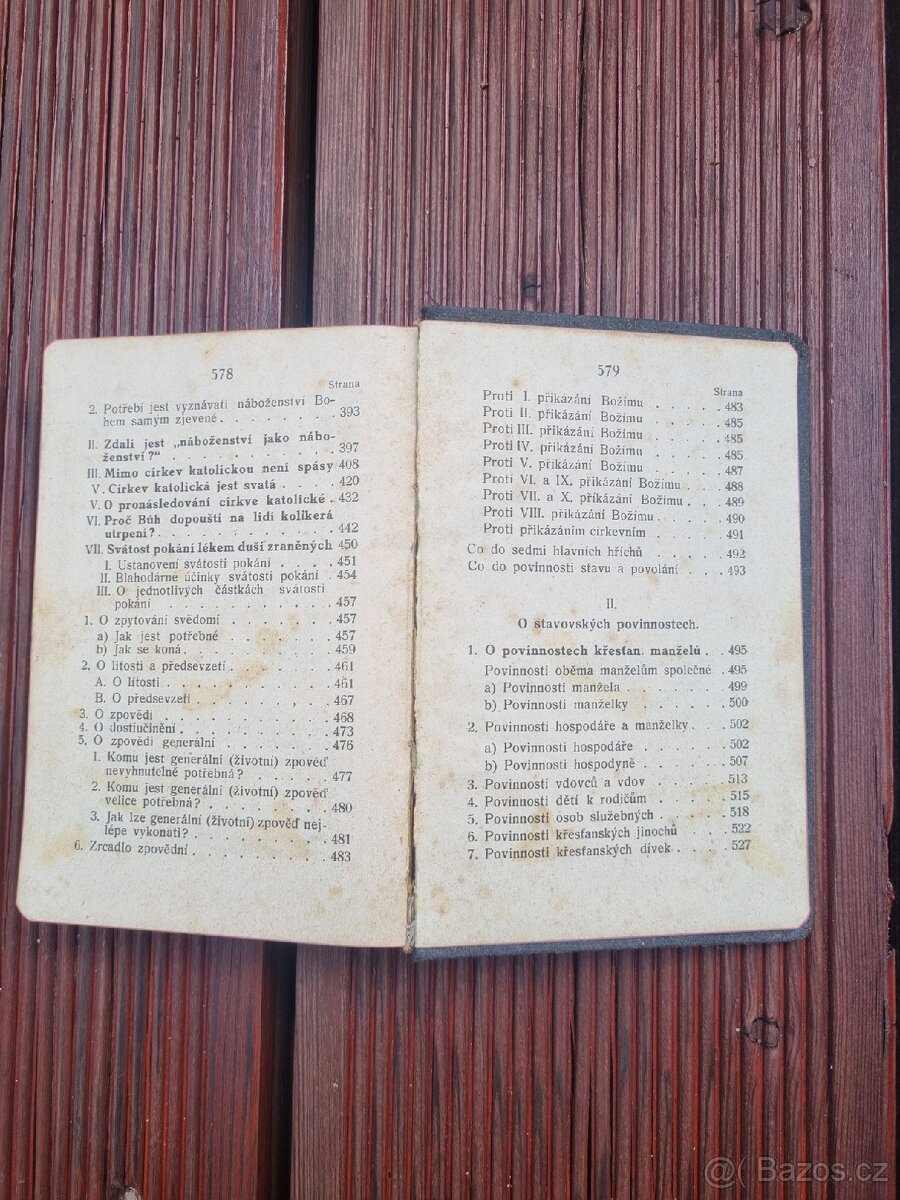 578
Strana
2. Potřebí jest vyznávati náboženství Bo-
hem samým zjevené . . . . . . . . 393
II. Zdali jest „náboženství jako nábo-
ženství?“ . . . . . . . . . . . 397
III. Mimo církev katolickou není spásy 408
V. Církev katolická jest svatá . . . . 420
V. O pronásledování církve katolické . 432
VI. Proč Bůh dopouští na lidi kolikerá
utrpení? . . . . . . . . . . . 442
VII. Svátost pokání lékem duší zraněných 450
I. Ustanovení svátosti pokání . . . . 451
II. Blahodárné účinky svátosti pokání . 454
III. O jednotlivých částkách svátosti
pokání . . . . . . . . . . . 457
1. O zpytování svědomí . . . . . . . 457
a) Jak jest potřebné . . . . . . . 457
b) Jak se koná . . . . . . . . . 459
2. O lítosti a předsevzetí . . . . . . 461
A. O lítosti . . . . . . . . . . 461
B. O předsevzetí . . . . . . . . 467
3. O zpovědi . . . . . . . . . . . 468
4. O dostiučinění . . . . . . . . . 473
5. O zpovědi generální . . . . . . . 476
1. Komu jest generální (životní) zpověď
nevyhnutelně potřebná? . . . . . 477
2. Komu jest generální (životní) zpověď
velice potřebná? . . . . . . . . 480
3. Jak lze generální (životní) zpověď nej-
lépe vykonati? . . . . . . . . . 481
6. Zrcadlo zpovědní . . . . . . . . 483
579
Strana
Proti I. přikázání Božímu . . . . . 483
Proti II. přikázání Božímu . . . . . 485
Proti III. přikázání Božímu . . . . . 485
Proti IV. přikázání Božímu . . . . . 485
Proti V. přikázání Božímu . . . . . 487
Proti VI. a IX. přikázání Božímu . . . 488
Proti VII. a X. přikázání Božímu . . . 489
Proti VIII. přikázání Božímu . . . . . 490
Proti přikázáním církevním . . . . . 491
Co do sedmi hlavních hříchů . . . . 492
Co do povinností stavu a povolání . . . 493
II.
O stavovských povinnostech.
1. O povinnostech křesťan. manželů . . 495
Povinnosti oběma manželům společné . 495
a) Povinnosti manžela . . . . . . 499
b) Povinnosti manželky . . . . . . 500
2. Povinnosti hospodáře a manželky . . 502
a) Povinnosti hospodáře . . . . . 502
b) Povinnosti hospodyně . . . . . 507
3. Povinnosti vdovců a vdov . . . . . 513
4. Povinnosti dětí k rodičům . . . . . 515
5. Povinnosti osob služebných . . . . 518
6. Povinnosti křesťanských jinochů . . . 522
7. Povinnosti křesťanských dívek . . . . 527
@( Bazos.cz